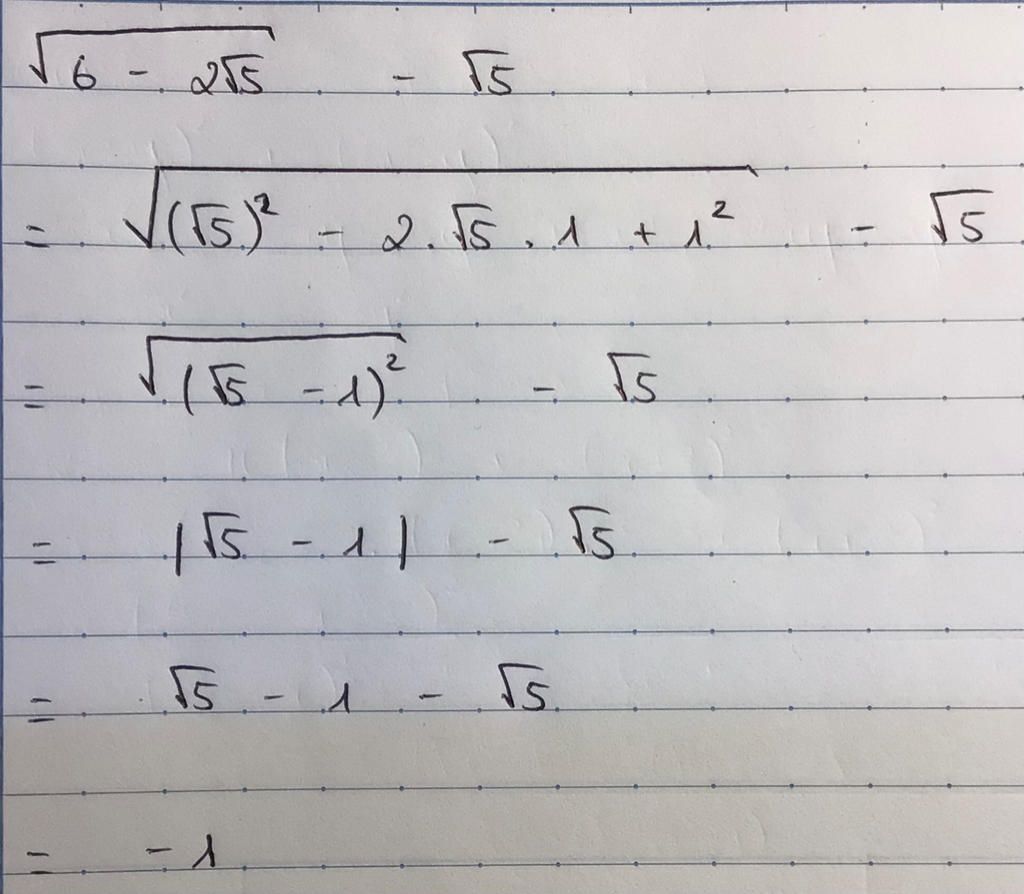 √(6 - 2√5) - √5
= √((√5)² - 2.√5.1 + 1²) - √5
= √((√5 - 1)²) - √5
= |√5 - 1| - √5
= √5 - 1 - √5
= -1